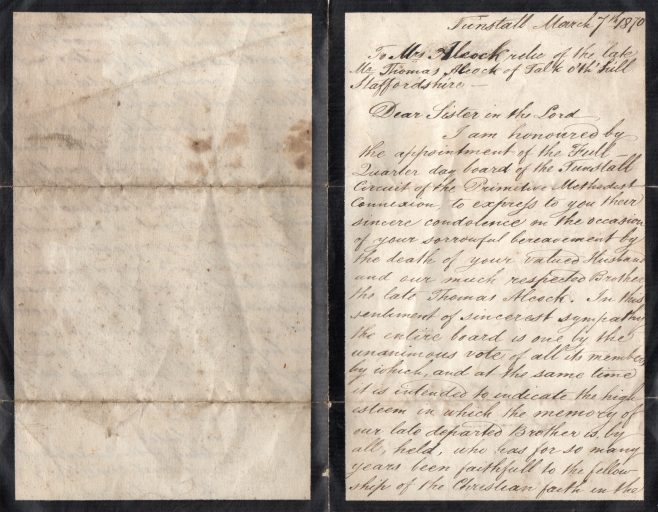 Tunstall March 7th 1870
To Mrs Alcock relic of the late
Mr Thomas Alcock of Talk o'th' hill
Staffordshire —
Dear Sister in the Lord
I am honoured by
the appointment of the Full —
Quarter day board of the Tunstall
Circuit of the Primitive Methodist
Connexion to express to you their
sincere condolence on the occasion
of your sorrowful bereavement by
the death of your valued Husband
and our much respected Brother
the late Thomas Alcock. In this
sentiment of sincerest sympathy
the entire board is one by the
unanimous vote of all its members
by which, and at the same time
it is intended to indicate the high
esteem in which the memory of
our late departed Brother is, by
all, held, who has for so many
years been faithfull to the fellow-
ship of the Christian faith in the